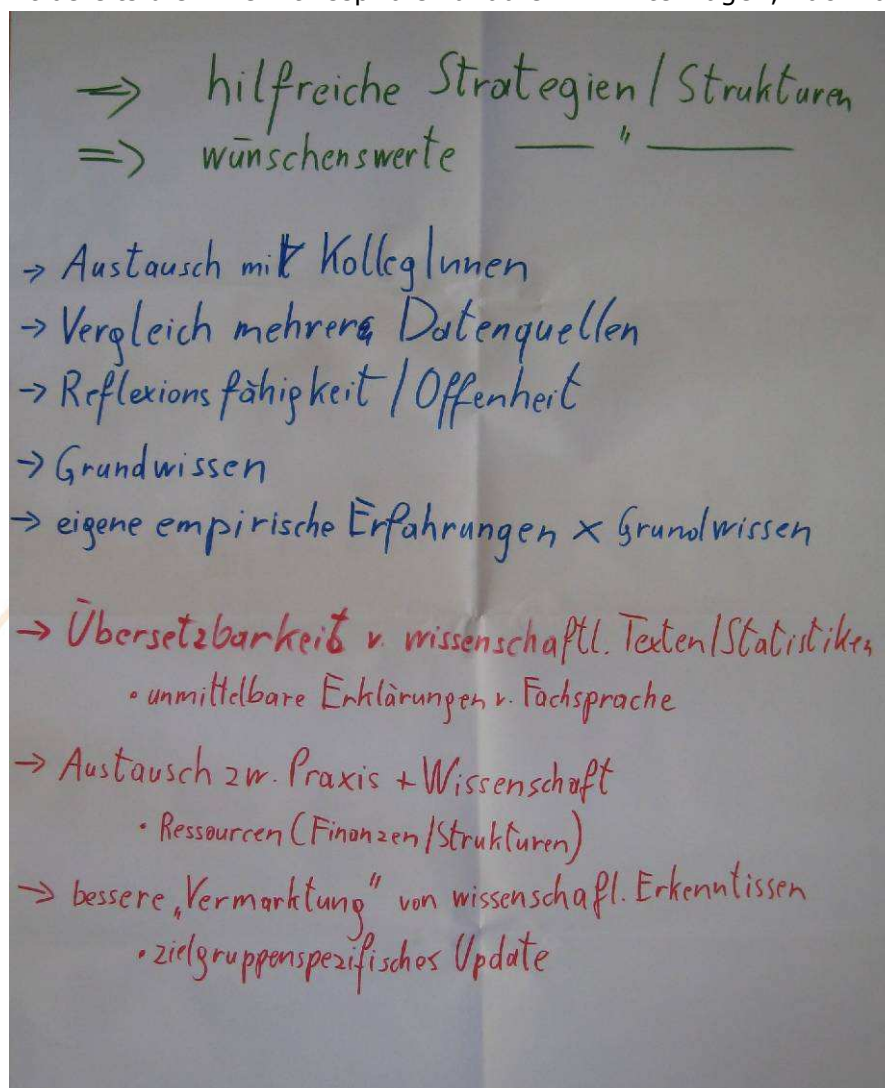 ⇒ hilfreiche Strategien / Strukturen
⇒ wünschenswerte — " —
→ Austausch mit KollegInnen
→ Vergleich mehrere Datenquellen
→ Reflexionsfähigkeit / Offenheit
→ Grundwissen
→ eigene empirische Erfahrungen x Grundwissen
→ Übersetzbarkeit v. wissenschaftl. Texten/Statistiken
• unmittelbare Erklärungen v. Fachsprache
→ Austausch zw. Praxis + Wissenschaft
• Ressourcen (Finanzen/Strukturen)
→ bessere „Vermarktung" von wissenschafl. Erkenntissen
• zielgruppenspezifisches Update